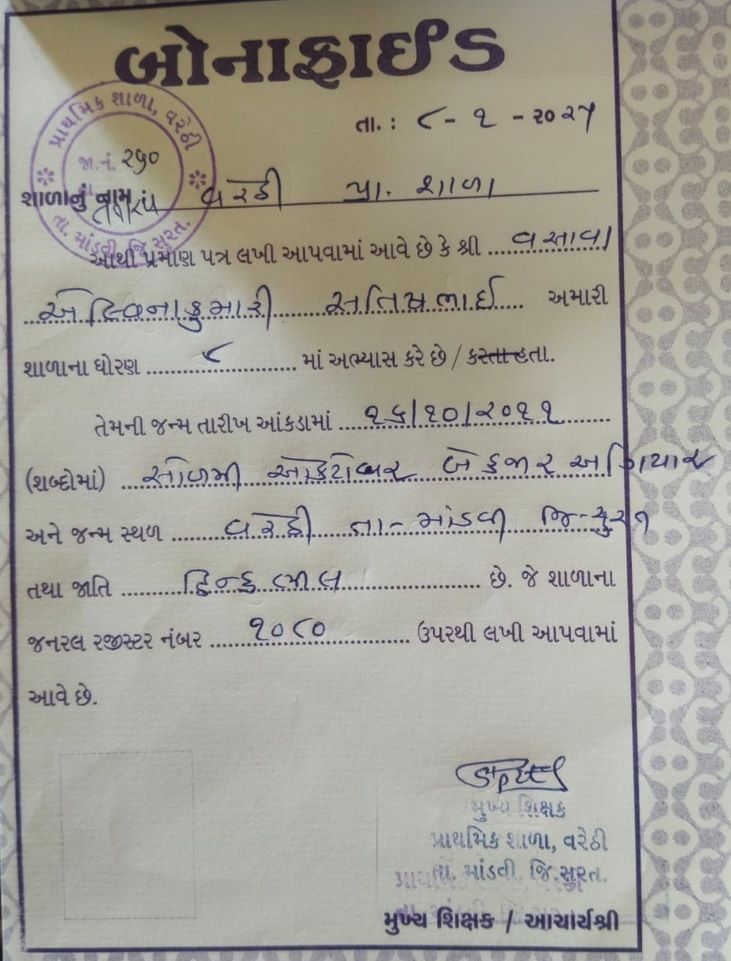 બોનાફાઈડ
પ્રાથમિક શાળા, વરેઠી
જા.નં. ૨૫૦
તા. માંડવી, જિ. સુરત.
તા. : ૮ - ૧ - ૨૦૨૫
શાળાનું નામ વરેઠી પ્રા. શાળા
આથી પ્રમાણ પત્ર લખી આપવામાં આવે છે કે શ્રી વસાવા
એલ્વિનાકુમારી સતિષભાઈ અમારી
શાળાના ધોરણ ૮ માં અભ્યાસ કરે છે / કરતા હતા.
તેમની જન્મ તારીખ આંકડામાં ૧૬/૧૦/૨૦૧૧
(શબ્દોમાં) સોળમી ઓક્ટોબર બે હજાર અગિયાર
અને જન્મ સ્થળ વરેઠી તા- માંડવી જિ- સુરત
તથા જાતિ હિન્દુ ભીલ છે. જે શાળાના
જનરલ રજીસ્ટર નંબર ૧૦૮૦ ઉપરથી લખી આપવામાં
આવે છે.
મુખ્ય શિક્ષક
પ્રાથમિક શાળા, વરેઠી
તા. માંડવી, જિ. સુરત.
મુખ્ય શિક્ષક / આચાર્યશ્રી